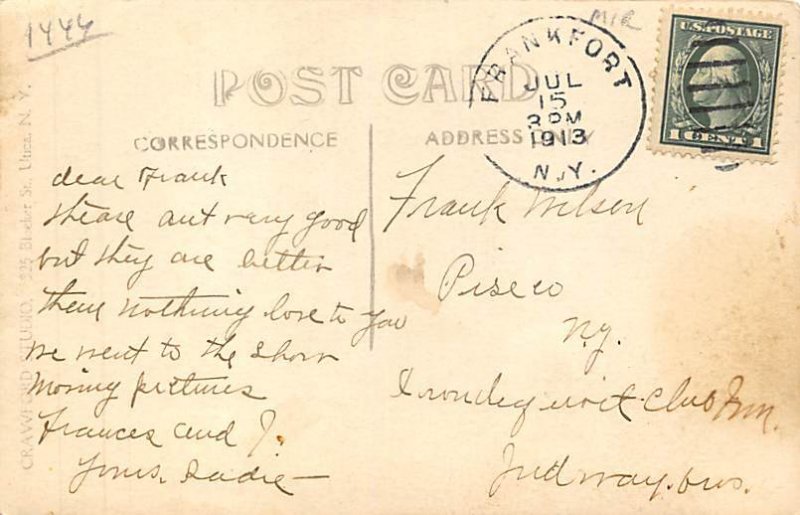 1446
MIR
POST CARD
CORRESPONDENCE
ADDRESS ONLY
FRANKFORT
JUL
15
3 PM
1913
N.Y.
U.S. POSTAGE
1 CENT 1
CRAWFORD STUDIO, 225 Bleecker St. Utica, N. Y.
dear Frank
these ant very good
but they are better
then nothing love to you
we went to the show
moving pictures
Frances and J.
Yours, Sadie
Frank Wilson
Piseco
N.y.
Club Inn.